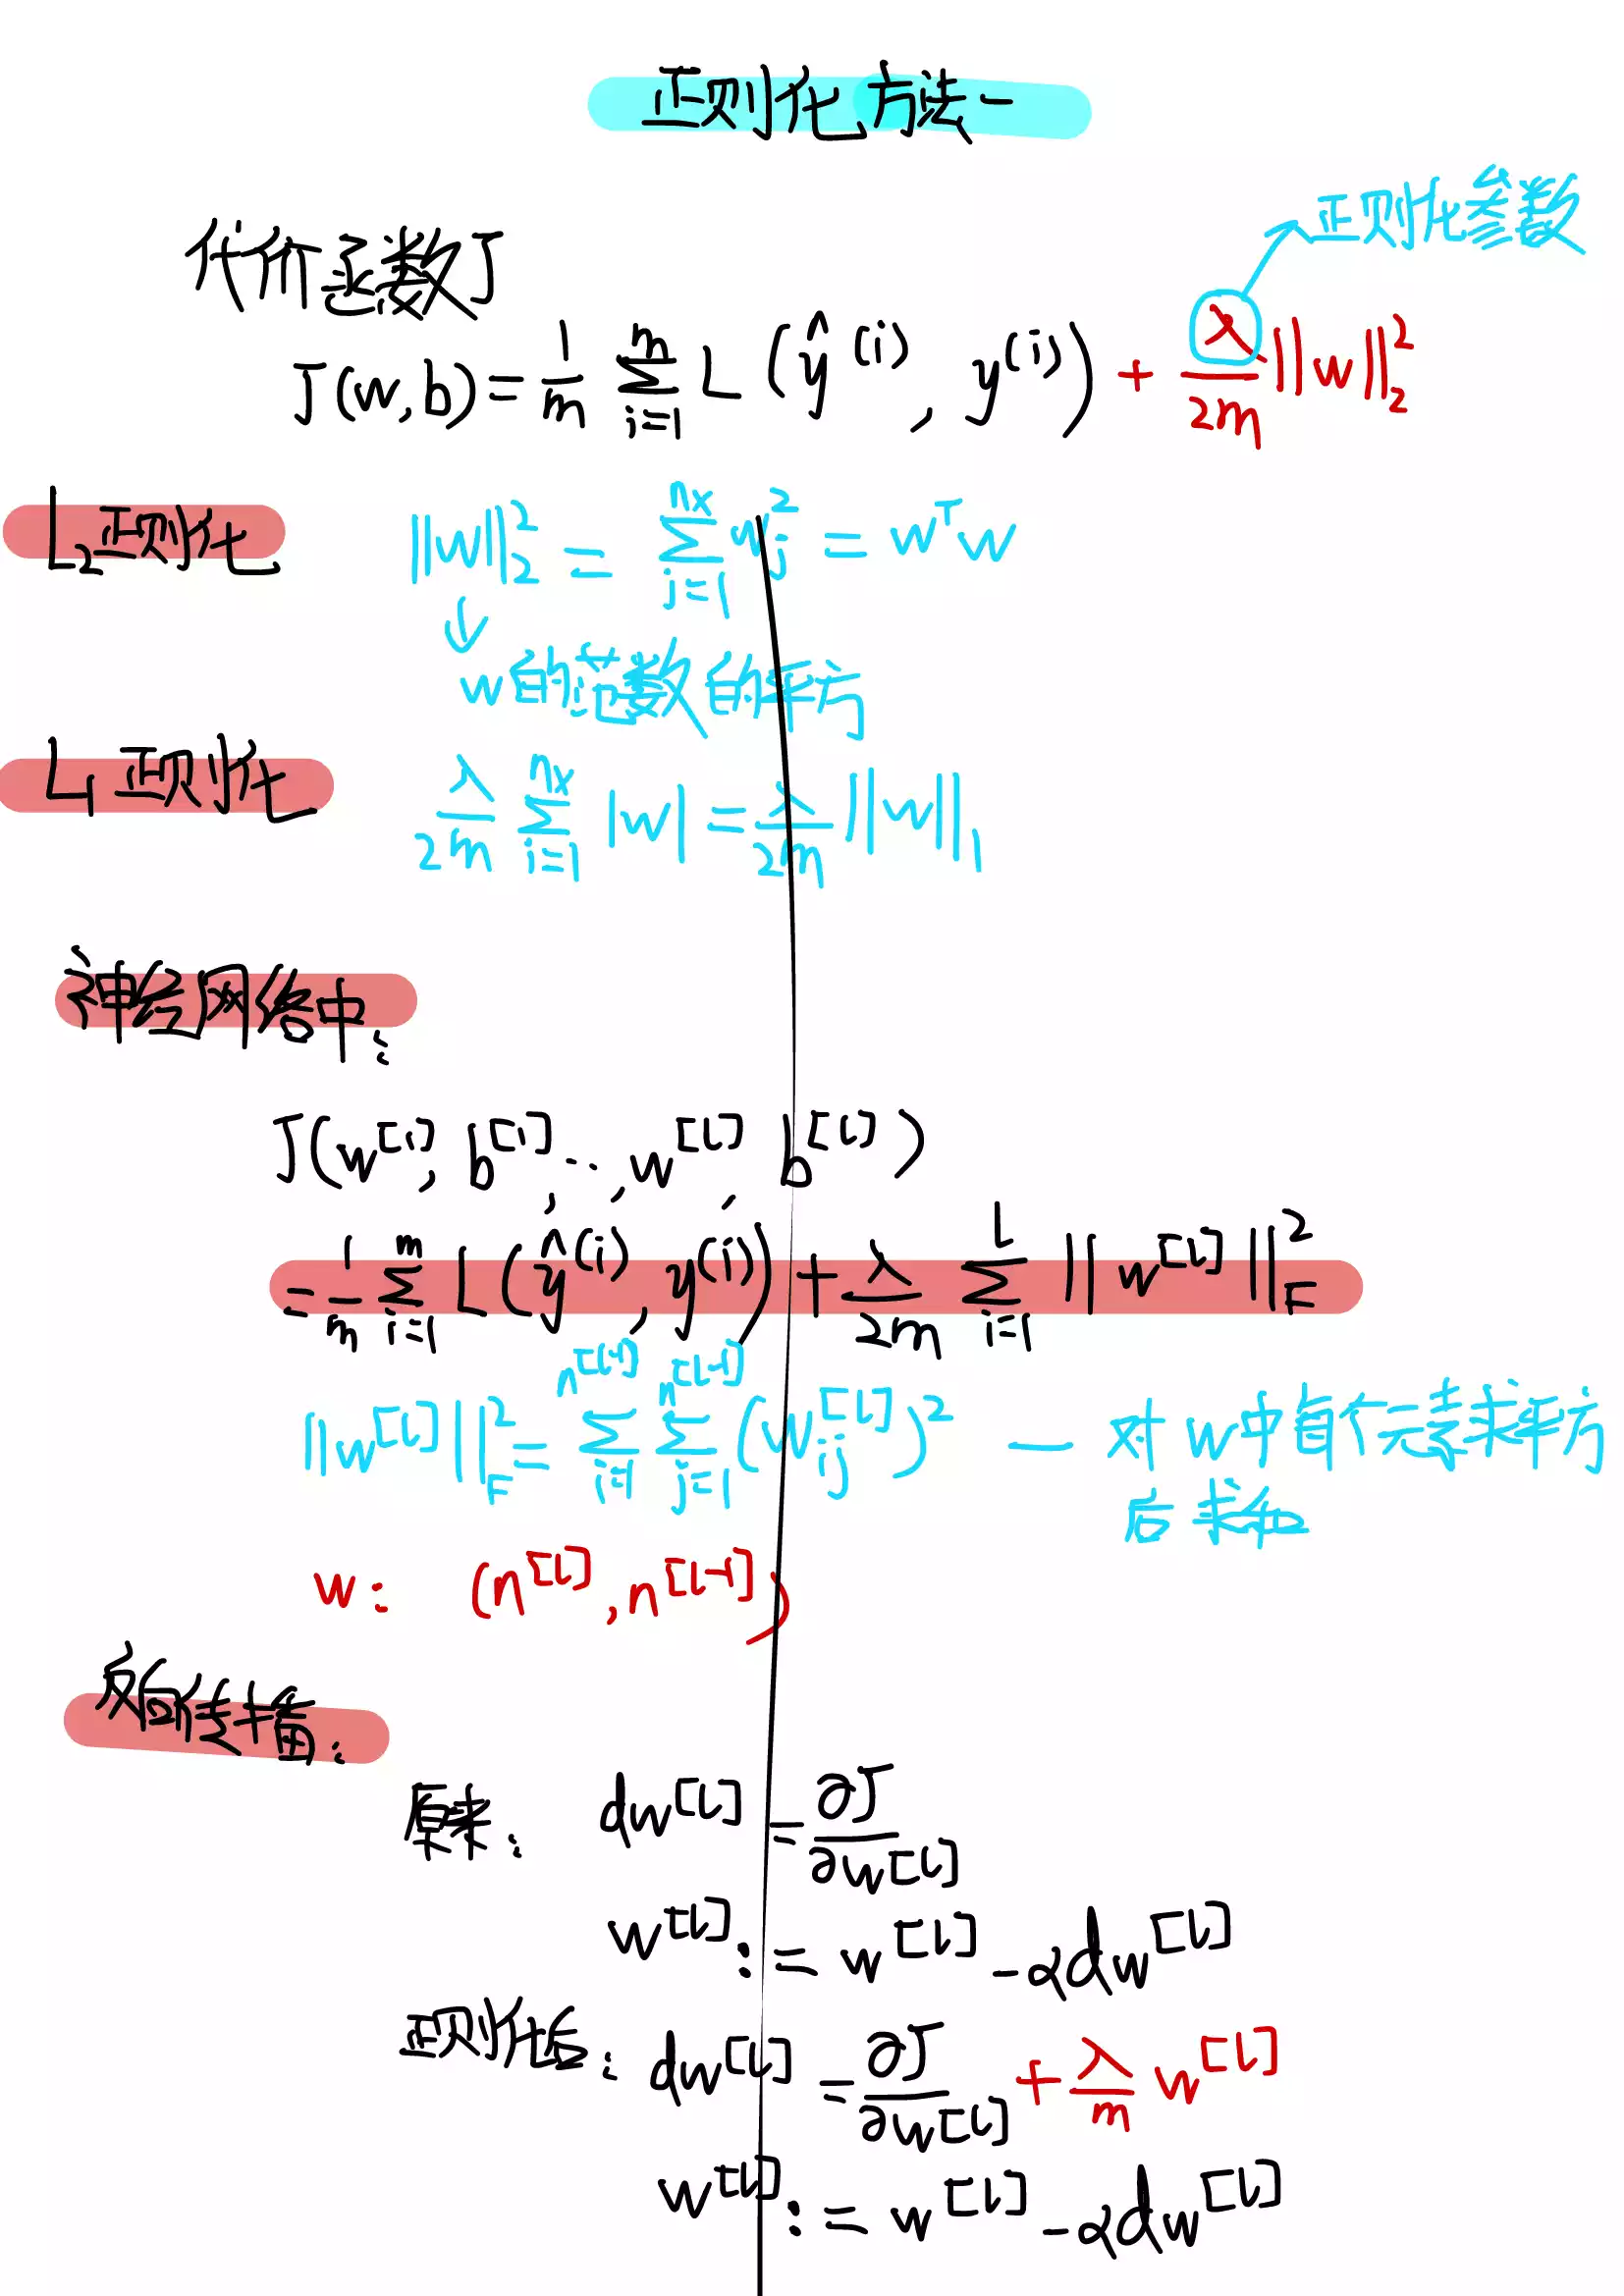 正则化方法一
正则化参数
代价函数J
J(w,b)=\frac{1}{m}\sum_{i=1}^{m}L(\hat{y}^{(i)},y^{(i)})+\frac{λ}{2m}||w||_2^2
L₂正则化 ||w||_2^2=\sum_{j=1}^{n_x}w_j^2=w^Tw
↓
w的范数的平方
L₁正则化 \frac{λ}{2m}\sum_{i=1}^{n_x}|w|=\frac{λ}{2m}||w||_1
神经网络中:
J(w^{[1]},b^{[1]},…,w^{[l]},b^{[l]})
=\frac{1}{m}\sum_{i=1}^{m}L(\hat{y}^{(i)},y^{(i)})+\frac{λ}{2m}\sum_{i=1}^{l}||w^{[l]}||_F^2
||w^{[l]}||_F^2=\sum_{i=1}^{n^{[l-1]}}\sum_{j=1}^{n^{[l-1]}}(w_{ij}^{[l]})^2 — 对w中每个元素求平方
后求和
w: (n^{[l]},n^{[l-1]})
反向传播:
原来: dw^{[l]}=\frac{∂J}{∂w^{[l]}}
w^{[l]}:=w^{[l]}-αdw^{[l]}
正则化后: dw^{[l]}=\frac{∂J}{∂w^{[l]}}+\frac{λ}{m}w^{[l]}
w^{[l]}:=w^{[l]}-αdw^{[l]}